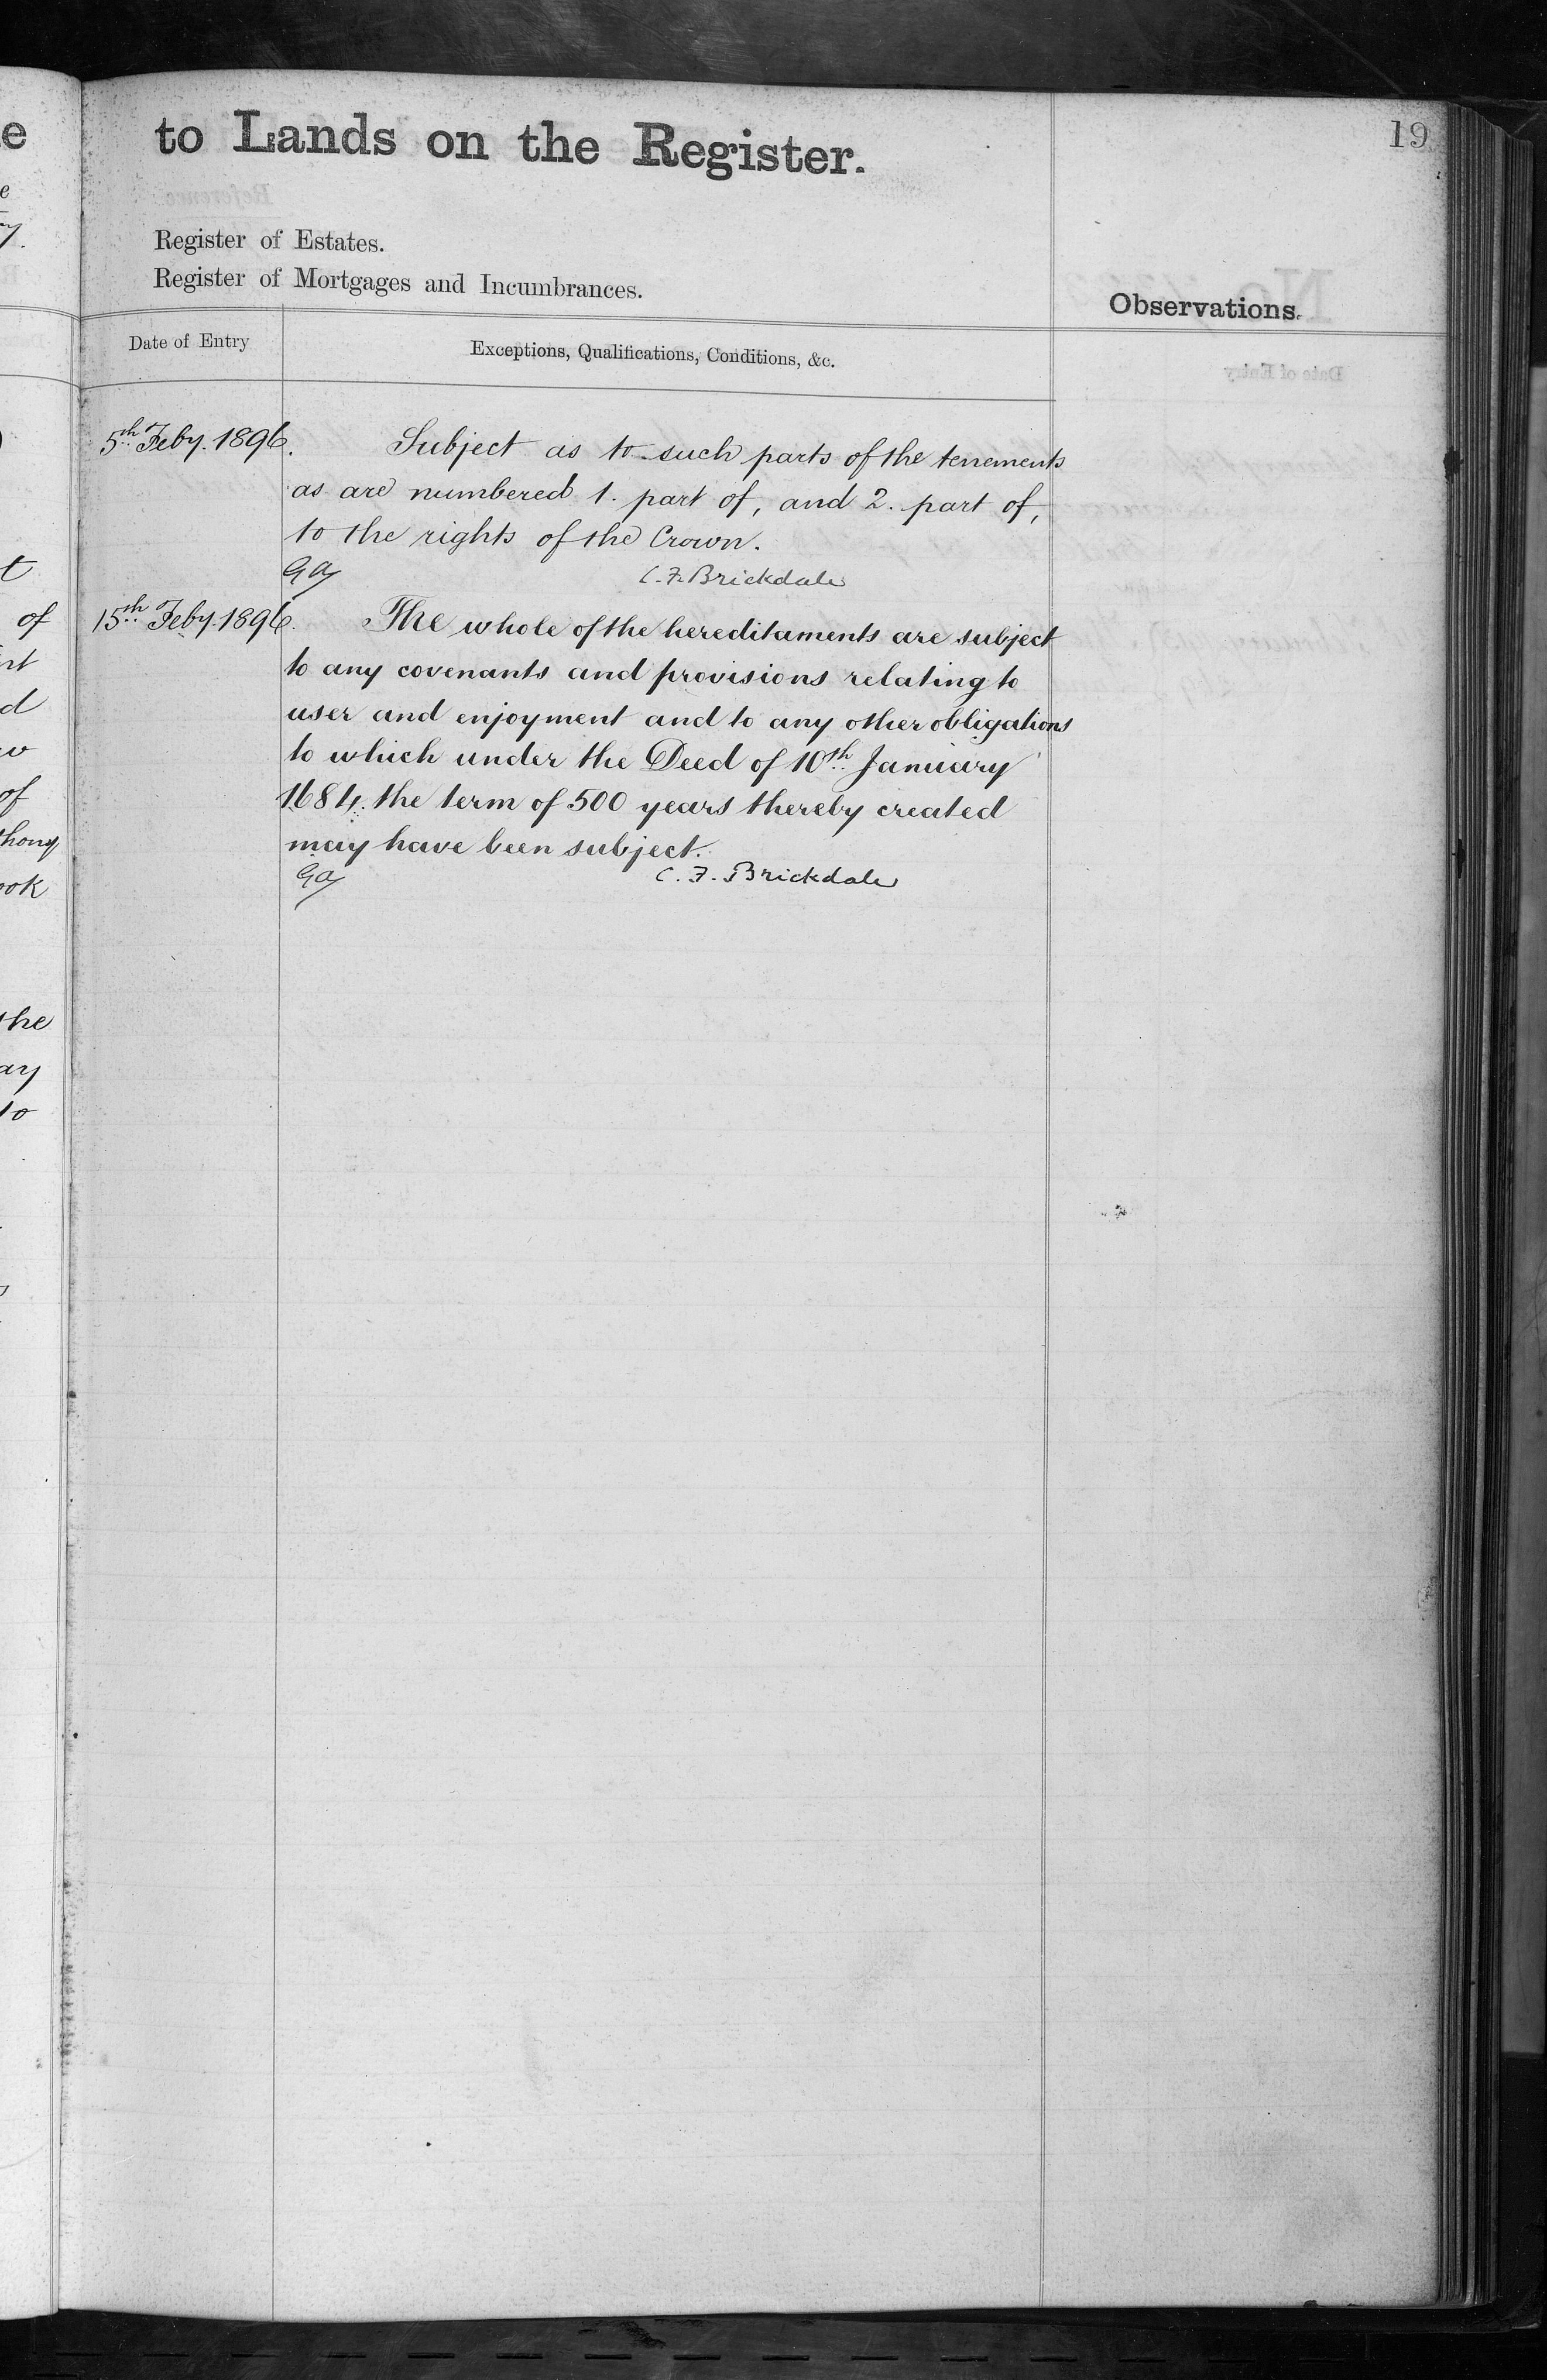 to Lands on the Register.
19
Register of Estates.
Register of Mortgages and Incumbrances.
Observations.
Date of Entry
Exceptions, Qualifications, Conditions, &c.
5th Feby. 1896.
Subject as to such parts of the tenements
as are numbered 1. part of, and 2. part of,
to the rights of the Crown.
C. F. Brickdale
15th Feby. 1896.
The whole of the hereditaments are subject
to any covenants and provisions relating to
user and enjoyment and to any other obligations
to which under the Deed of 10th January
1684. the term of 500 years thereby created
may have been subject.
C. F. Brickdale
e
e
t
of
d
of
ook
the
ay
to